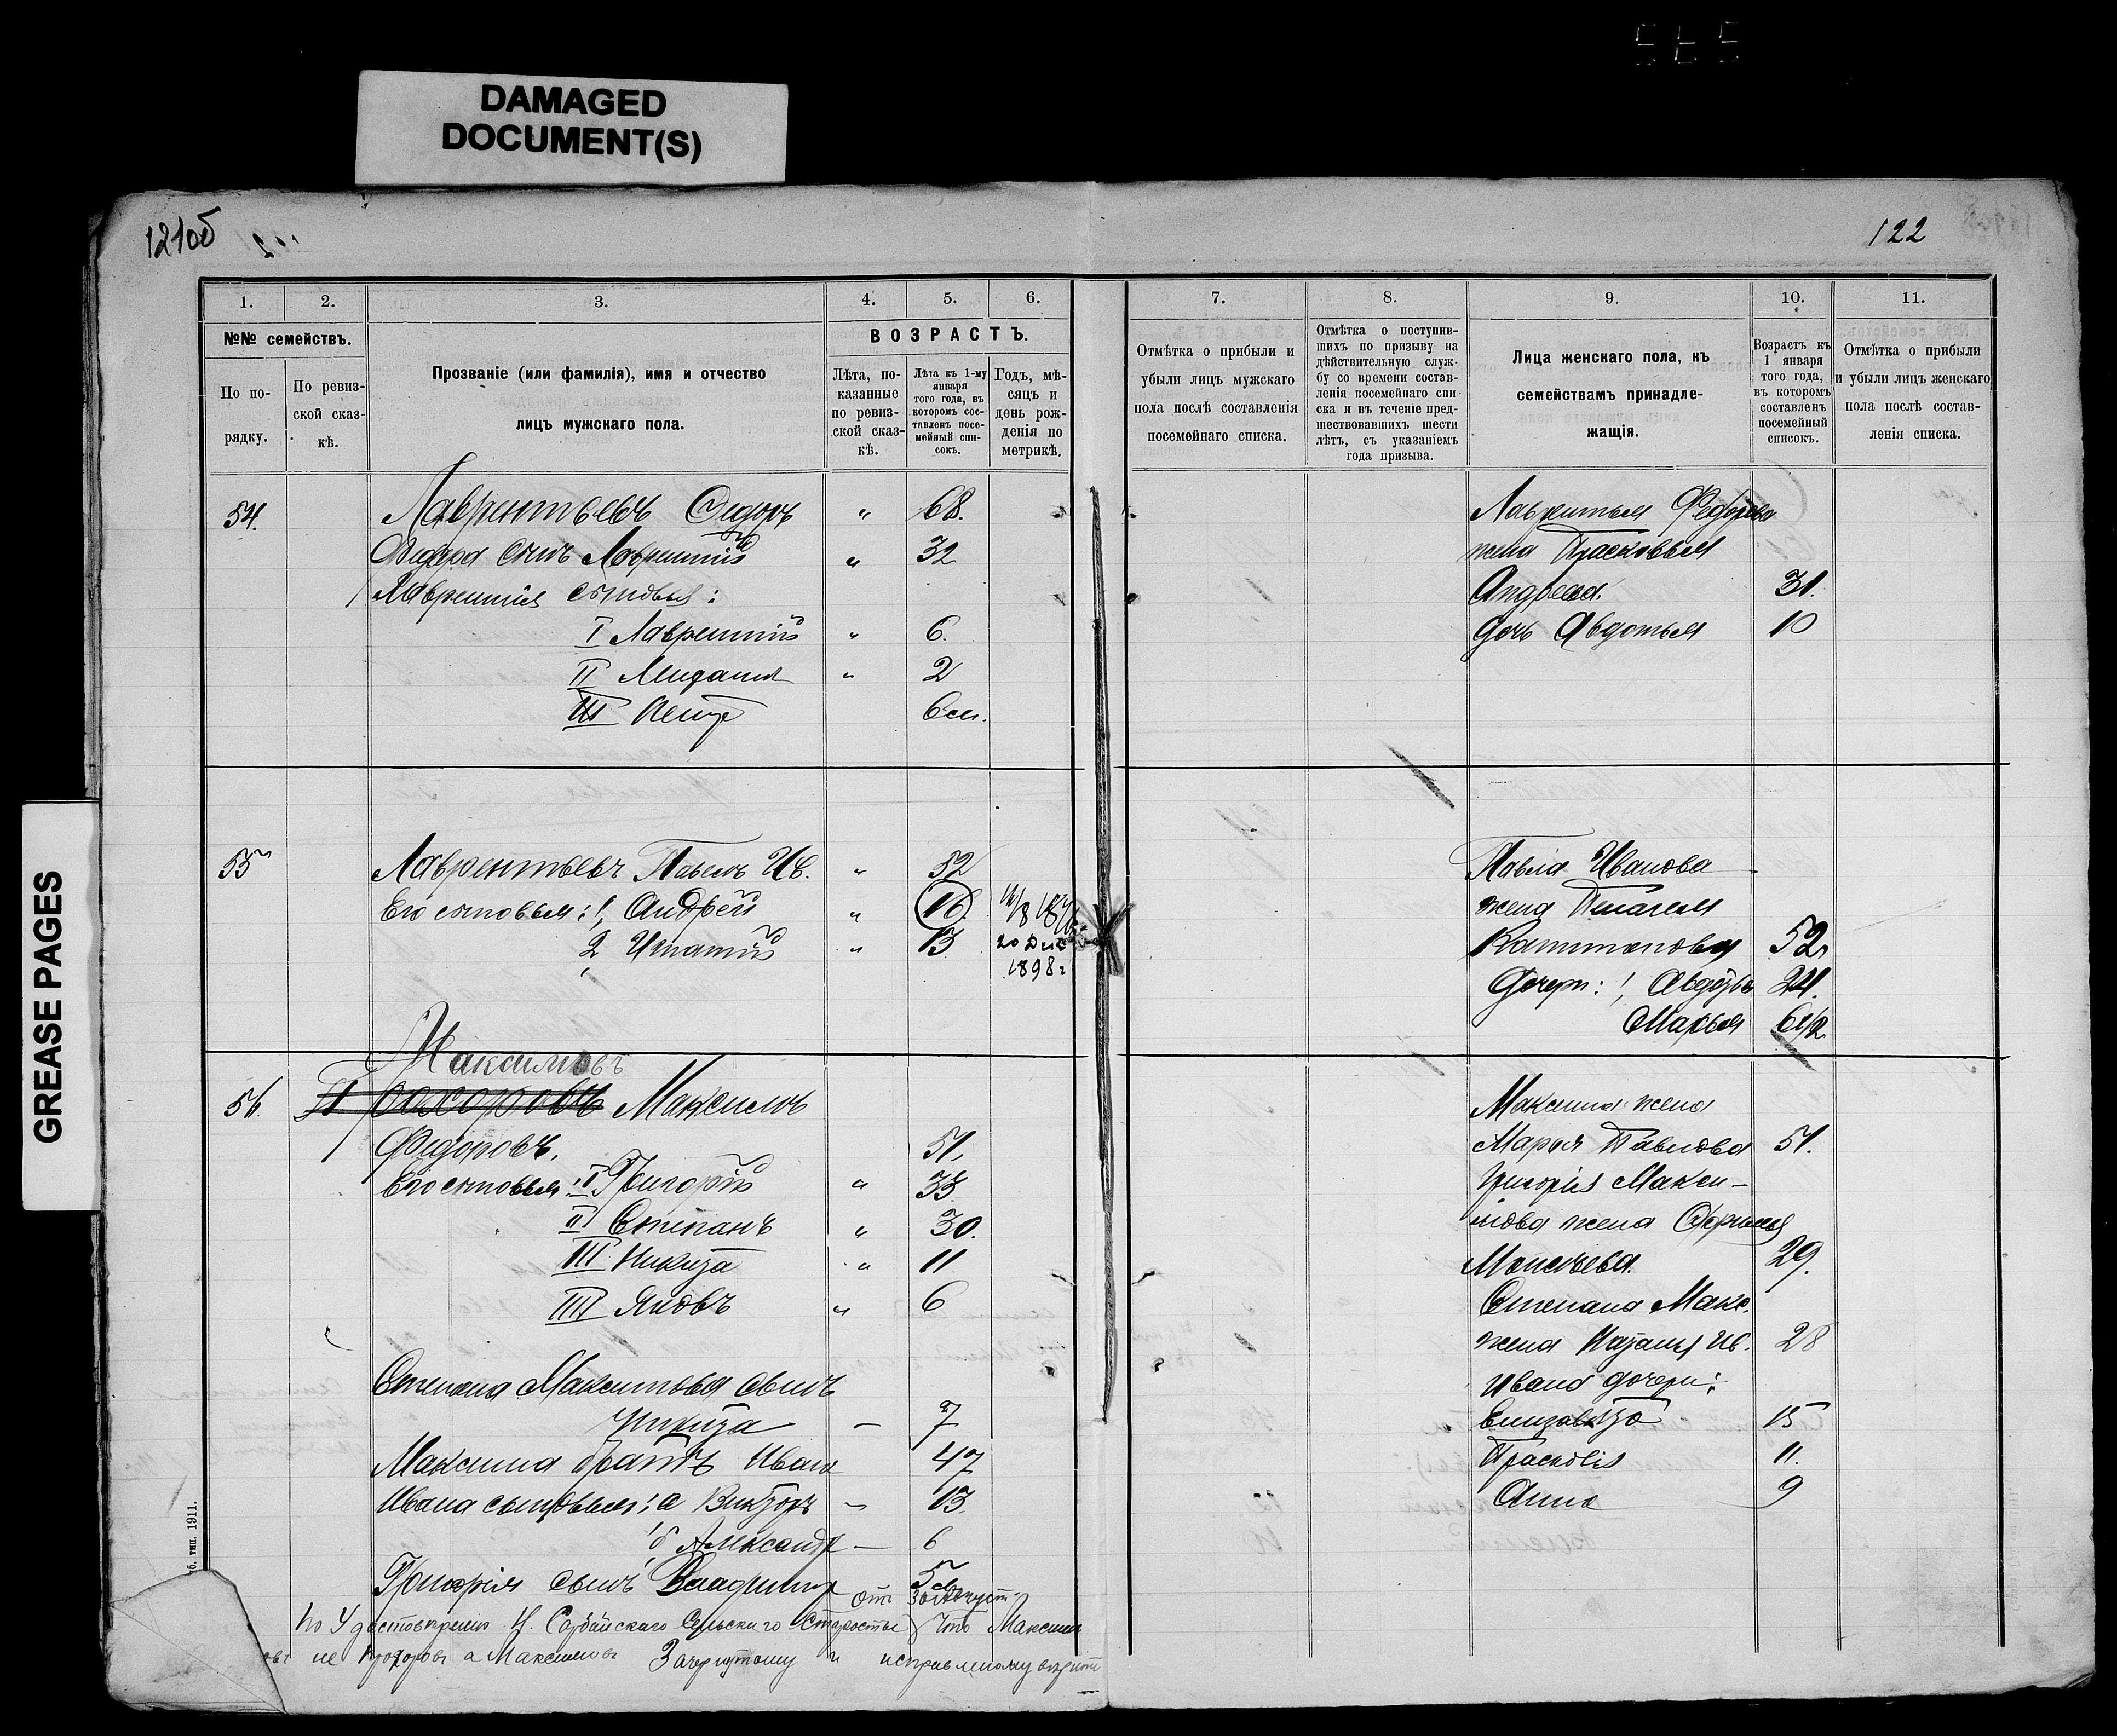 565
DAMAGED
DOCUMENT(S)
GREASE PAGES
121об
122
1.
2.
3.
4.
5.
6.
№№ семействъ.
По по-
рядку.
По ревиз-
ской сказ-
кѣ.
Прозваніе (или фамилія), имя и отчество
лицъ мужскаго пола.
ВОЗРАСТЪ.
Лѣта, по-
казанные
по ревиз-
ской сказ-
кѣ.
Лѣта къ 1-му
января
того года, въ
которомъ сос-
тавленъ посе-
мейный спи-
сокъ.
Годъ, мѣ-
сяцъ и
день рож-
денія по
метрикѣ.
54. Лаврентьевъ Сидоръ " 68.
Сидора сынъ Лаврентій " 32
Лаврентія сыновья:
I Лаврентій " 6.
II " 2
III Петр 6 м.
55 Лаврентьевъ Павелъ Ив. " 52
Его сыновья: 1, Андрей " 16.
2, Игнатій " 13 20 Дек
1898 г
Максимовъ
56. Прохоровъ Максимъ
Федоровъ. 51.
Его сыновья: I Григорій " 33
II Степанъ " 30.
III Никита " 11
IIII Яковъ " 6
Степана Максимова сынъ
Никита — 7
Максима братъ Иванъ 47
Ивана сыновья: а Викторъ — 13.
б Александр — 6
Григорія сынъ Владимир 5 м
от 30 Августа
По Удостоверению Н. Сарбайскаго Сельскаго Старосты что Максим
не Прохоровъ а Максимовъ Зачеркнутому и исправленому верить
б. тип. 1911.
7.
8.
9.
10.
11.
Отмѣтка о прибыли и
убыли лицъ мужскаго
пола послѣ составленія
посемейнаго списка.
Отмѣтка о поступив-
шихъ по призыву на
дѣйствительную служ-
бу со времени состав-
ленія посемейнаго спи-
ска и въ теченіе пред-
шествовавшихъ шести
лѣтъ, съ указаніемъ
года призыва.
Лица женскаго пола, къ
семействамъ принадле-
жащія.
Возрастъ къ
1 января
того года,
въ которомъ
составленъ
посемейный
списокъ.
Отмѣтка о прибыли
и убыли лицъ женскаго
пола послѣ состав-
ленія списка.
Лаврентья Федорова
жена Прасковья
Андреева. 31.
дочь Авдотья 10
Павла Иванова
жена Пелагея
Капитонова 52
Дочери: 1, 24.
Марья 6 1/2
Максима жена
Марья Павлова 51.
Григорія Макси-
мова жена
Моисѣева. 29.
Степана Макс.
жена Наталья Ив. 28
Ивана дочери:
Елизавета 15
Прасковія 11.
Анна 9